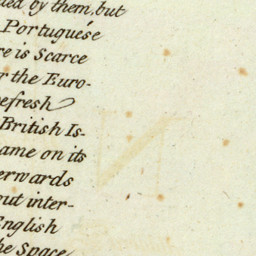 by them, but
Portuguése
re is Scarce
r the Euro-
efresh
British Is-
ame on its
erwards
out inter-
English
he Space